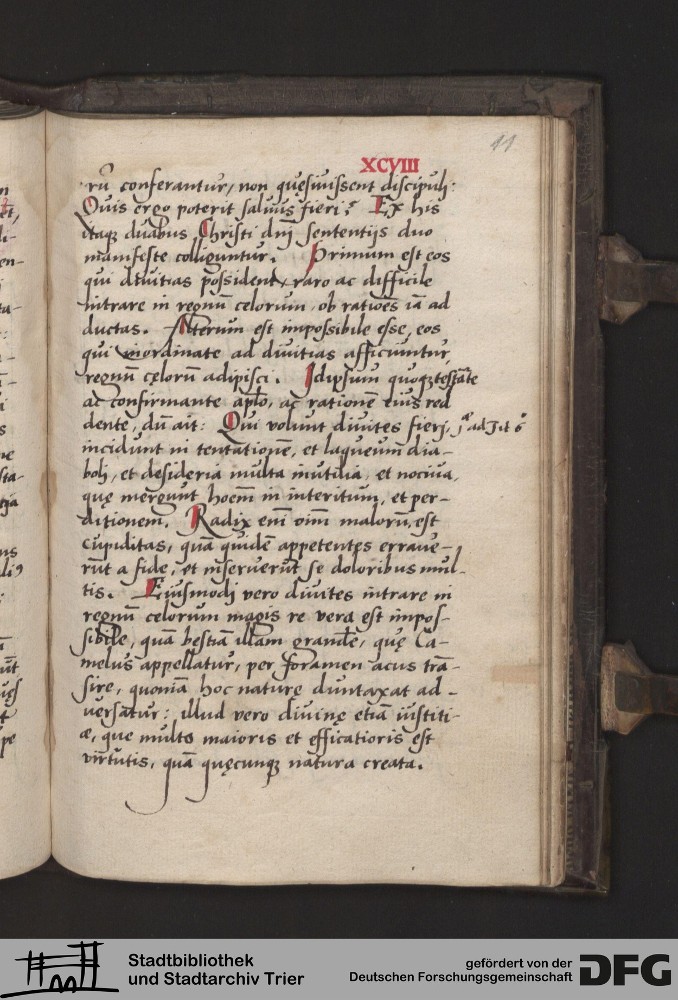 11
XCVIII
rū conferantur, non quęsiuissent discipuli:
Quis ergo poterit saluus fieri? Ex his
itaq; duabus Christi dnj sententijs duo
manifeste colliguntur. Primum est eos
qui diuitias possident, raro ac difficile
intrare in regnū celorum, ob rationes iā ad
ductas. Alterum est impossibile esse, eos
qui inordinate ad diuitias afficiuntur,
regnū cęlorū adipisci. Idipsum quoq; testāte
ac confirmante aplo, ac rationē eius red
dente, dū ait: Qui volunt diuites fierj, jª ad Tit 6
incidunt in tentationē, et laqueum dia-
bolj, et desideria multa inutilia, et nociua,
quę mergunt hoem̄ in interitum, et per-
ditionem. Radix enī oīm malorū, est
cupiditas, quā quidē appetentes erraue-
rūt a fide, et inseruerūt se doloribus mul-
tis. Eiusmodj vero diuites intrare in
regnū celorum magis re vera est impos-
sibile, quā bestiā illam grandē, quę Ca-
melus appellatur, per foramen acus trā-
sire, quoniā hoc naturę duntaxat ad-
uersatur: illud vero diuinę etiā iustiti-
æ, que multo maioris et efficatioris est
virtutis, quā quęcunq; natura creata.
Stadtbibliothek
und Stadtarchiv Trier
gefördert von der
Deutschen Forschungsgemeinschaft
DFG